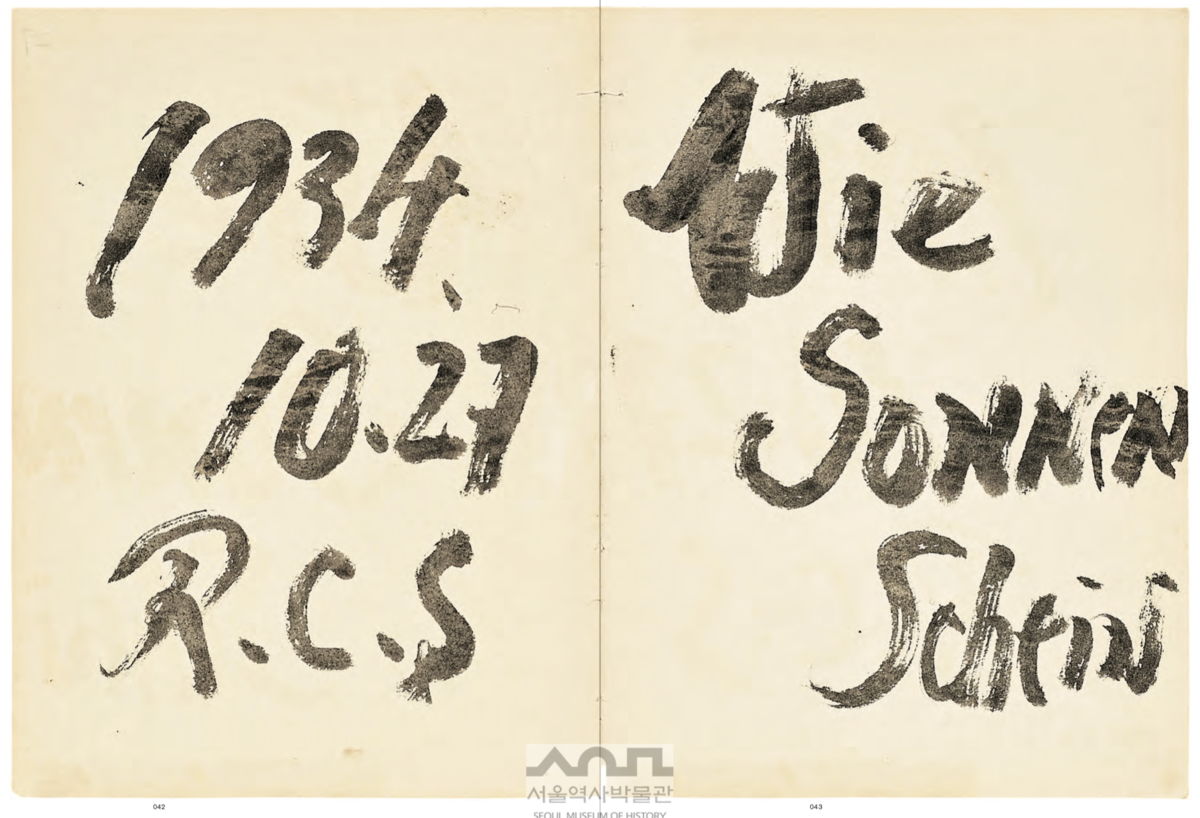 1934.
10.27
R.C.S
Wie
Sonnen
Schein
서울역사박물관
SEOUL MUSEUM OF HISTORY
042
043